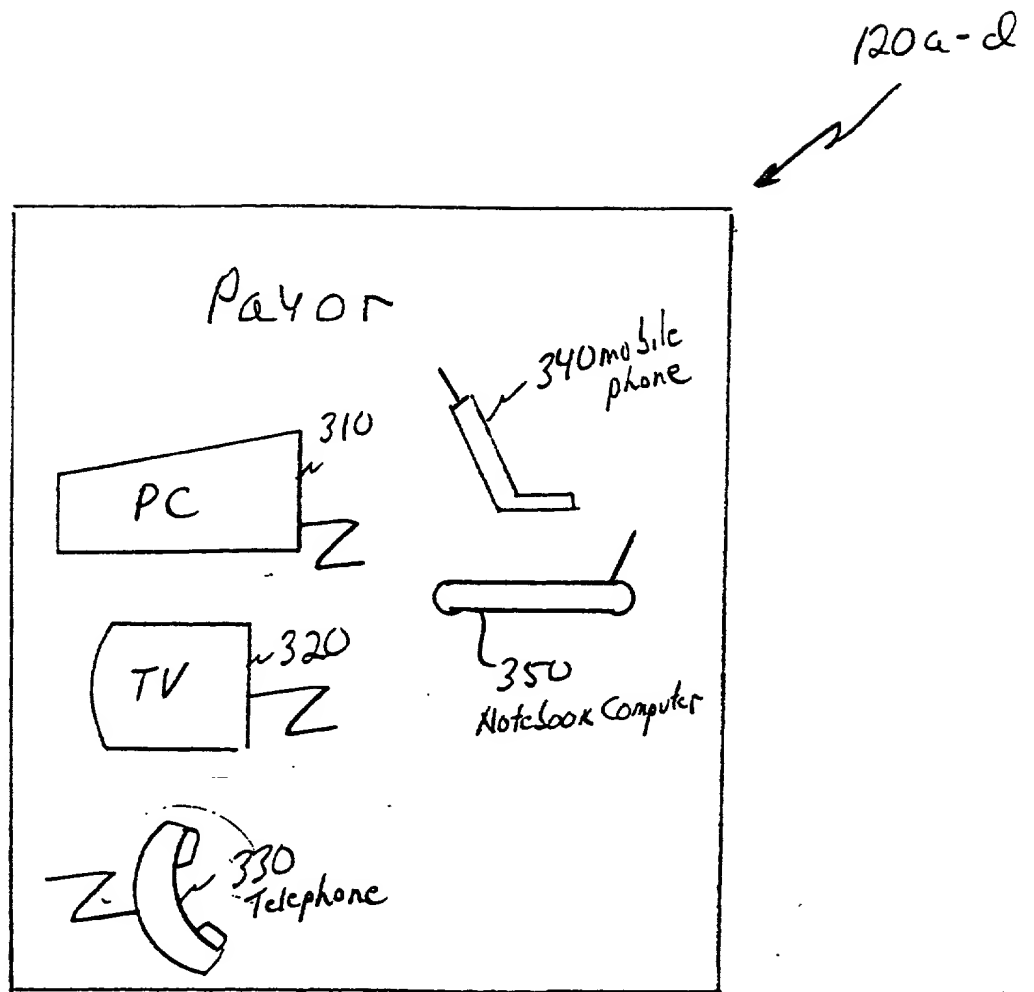 120a-d
Payor
310
PC
340 mobile
phone
320
TV
350
Notebook Computer
330
Telephone